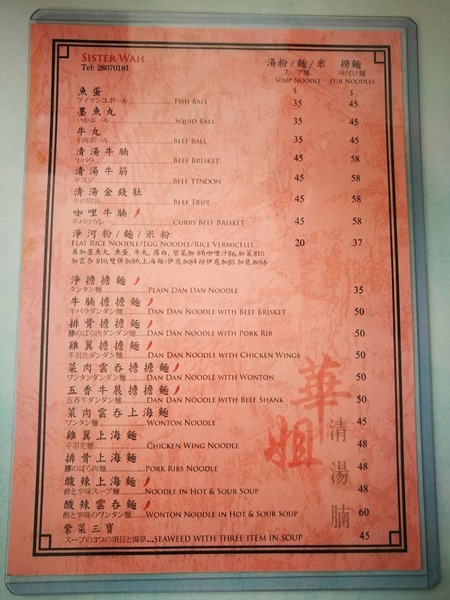 SISTER WAH
Tel: 28070181
湯粉/麵/米 撈麵
スープ麵 味付け麵
SOUP NOODLE STIR NOODLES
$ $
魚蛋
フィッシュボール FISH BALL 35 45
墨魚丸
いかボール SQUID BALL 35 45
牛丸
牛肉ボール BEEF BALL 35 45
清湯牛腩
牛バラ BEEF BRISKET 45 58
清湯牛筋
牛スジ BEEF TENDON 45 58
清湯金錢肚
牛の胃袋 BEEF TRIPE 45 58
咖哩牛腩
牛バラカレー CURRY BEEF BRISKET 45 58
淨河粉/麵/米粉
FLAT RICE NOODLE/EGG NOODLE/RICE VERMICELLI 20 37
另加墨魚丸, 魚蛋, 牛丸, 蘿白, 紫菜加$6 咖哩汁$6, 加菜$10
加雲吞 $10, 雙併加$6 上海麵/伊底加$4 撈伊底加$5 加底加$6
淨擔擔麵
タンタン麵 PLAIN DAN DAN NOODLE 35
牛腩擔擔麵
牛バラダンダン麵 DAN DAN NOODLE WITH BEEF BRISKET 50
排骨擔擔麵
豚のばら肉ダンダン麵 DAN DAN NOODLE WITH PORK RIB 50
雞翼擔擔麵
手羽先ダンダン麵 DAN DAN NOODLE WITH CHICKEN WINGS 50
菜肉雲吞擔擔麵
ワンタンダンダン麵 DAN DAN NOODLE WITH WONTON 50
五香牛𦟌擔擔麵
五香牛ダンダン麵 DAN DAN NOODLE WITH BEEF SHANK 50
菜肉雲吞上海麵
ワンタン麵 WONTON NOODLE 45
雞翼上海麵
手羽先麵 CHICKEN WING NOODLE 48
排骨上海麵
豚のばら肉麵 PORK RIBS NOODLE 48
酸辣上海麵
酢と辛味スープ麵 NOODLE IN HOT & SOUR SOUP 48
酸辣雲吞麵
酢と辛味のワンタン麵 WONTON NOODLE IN HOT & SOUR SOUP 60
紫菜三寶
スープの3つの項目と海草...SEAWEED WITH THREE ITEM IN SOUP 45
華姐
清湯腩